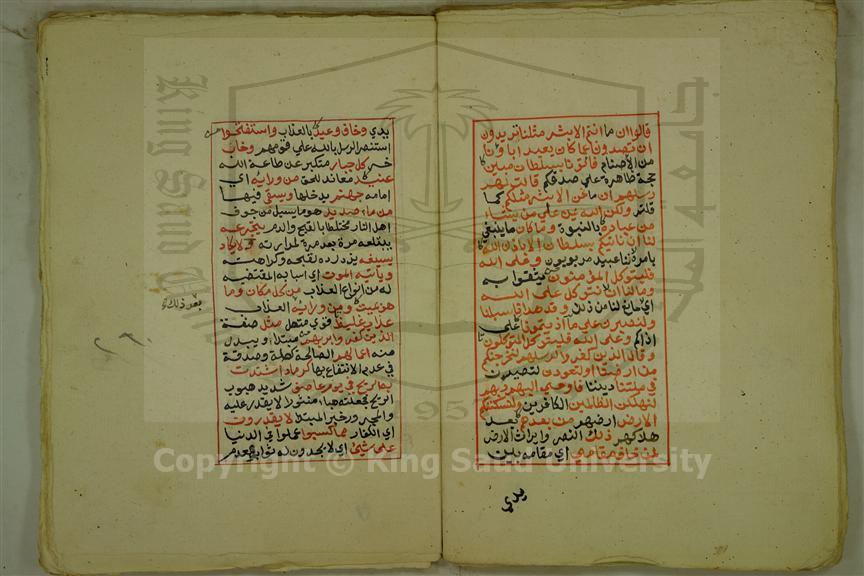 قالوا ان ما انتم الا بشر مثلنا تريدون
ان تصدونا عما كان يعبد اباؤنا
من الاصنام فاتونا بسلطان مبين
حجة ظاهرة على صدقكم قالت لهم
رسلهم ان ما نحن الا بشر مثلكم كما
قلتم ولكن الله يمن على من يشاء
من عباده بالنبوة وما كان ما ينبغي
لنا ان ناتيكم بسلطان الا باذن الله
بامره لاننا عبيد مربوبون وعلى الله
فليتوكل المؤمنون يثقوا به
وما لنا ان لا نتوكل على الله
اي مانع لنا من ذلك وقد هدانا سبلنا
ولنصبرن على ما اذيتمونا على
اذاكم وعلى الله فليتوكل المتوكلون
وقال الذين كفروا لرسلهم لنخرجنكم
من ارضنا او لتعودن لتصيرن
في ملتنا ديننا فاوحى اليهم ربهم
لنهلكن الظالمين الكافرين ولنسكننكم
الارض ارضهم من بعدهم بعد
هلاكهم ذلك النصر وايراث الارض
لمن خاف مقامي اي مقامه بين
يدي
يدي وخاف وعيد بالعذاب واستفتحوا
استنصر الرسل بالله على قومهم وخاب
خسر كل جبار متكبر عن طاعة الله
عنيد معاند للحق من ورائه اي
امامه جهنم يدخلها ويسقى فيها
من ماء صديد هو ما يسيل من جوف
اهل النار مختلطا بالقيح والدم يتجرعه
يبتلعه مرة بعد مرة لمرارته ولا يكاد
يسيغه يزدرده لقبحه وكراهته
وياتيه الموت اي اسبابه المقتضية
له من انواع العذاب من كل مكان وما
هو بميت ومن ورائه العذاب
عذاب غليظ قوي متصل مثل صفة
الذين كفروا بربهم مبتدا ويبدل
منه اعمالهم الصالحة كصلة وصدقة
في عدم الانتفاع بها كرماد اشتدت
به الريح في يوم عاصف شديد هبوب
الريح فجعلته هباء منثورا لا يقدر عليه
والمجرور خبر المبتدا لا يقدرون
اي الكفار مما كسبوا عملوا في الدنيا
على شيء اي لا يجدون له ثوابا لعدم
بعد ذلك
King Saud University
جامعة الملك
1957
Copyright © King Saud University